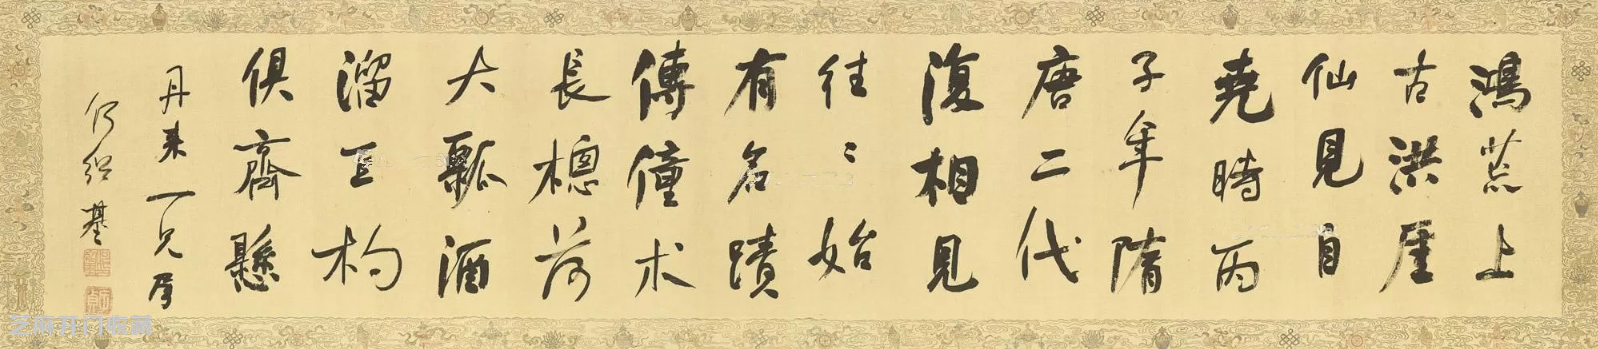 鴻荒上
古洪厓
仙見自
堯時丙
子年隋
唐二代
復相見
往〻始
有名蹟
傳僮术
長樬荷
大瓢酒
溜五杓
俱齊懸
丹來一兄屬
何紹基
芝麻开门收藏